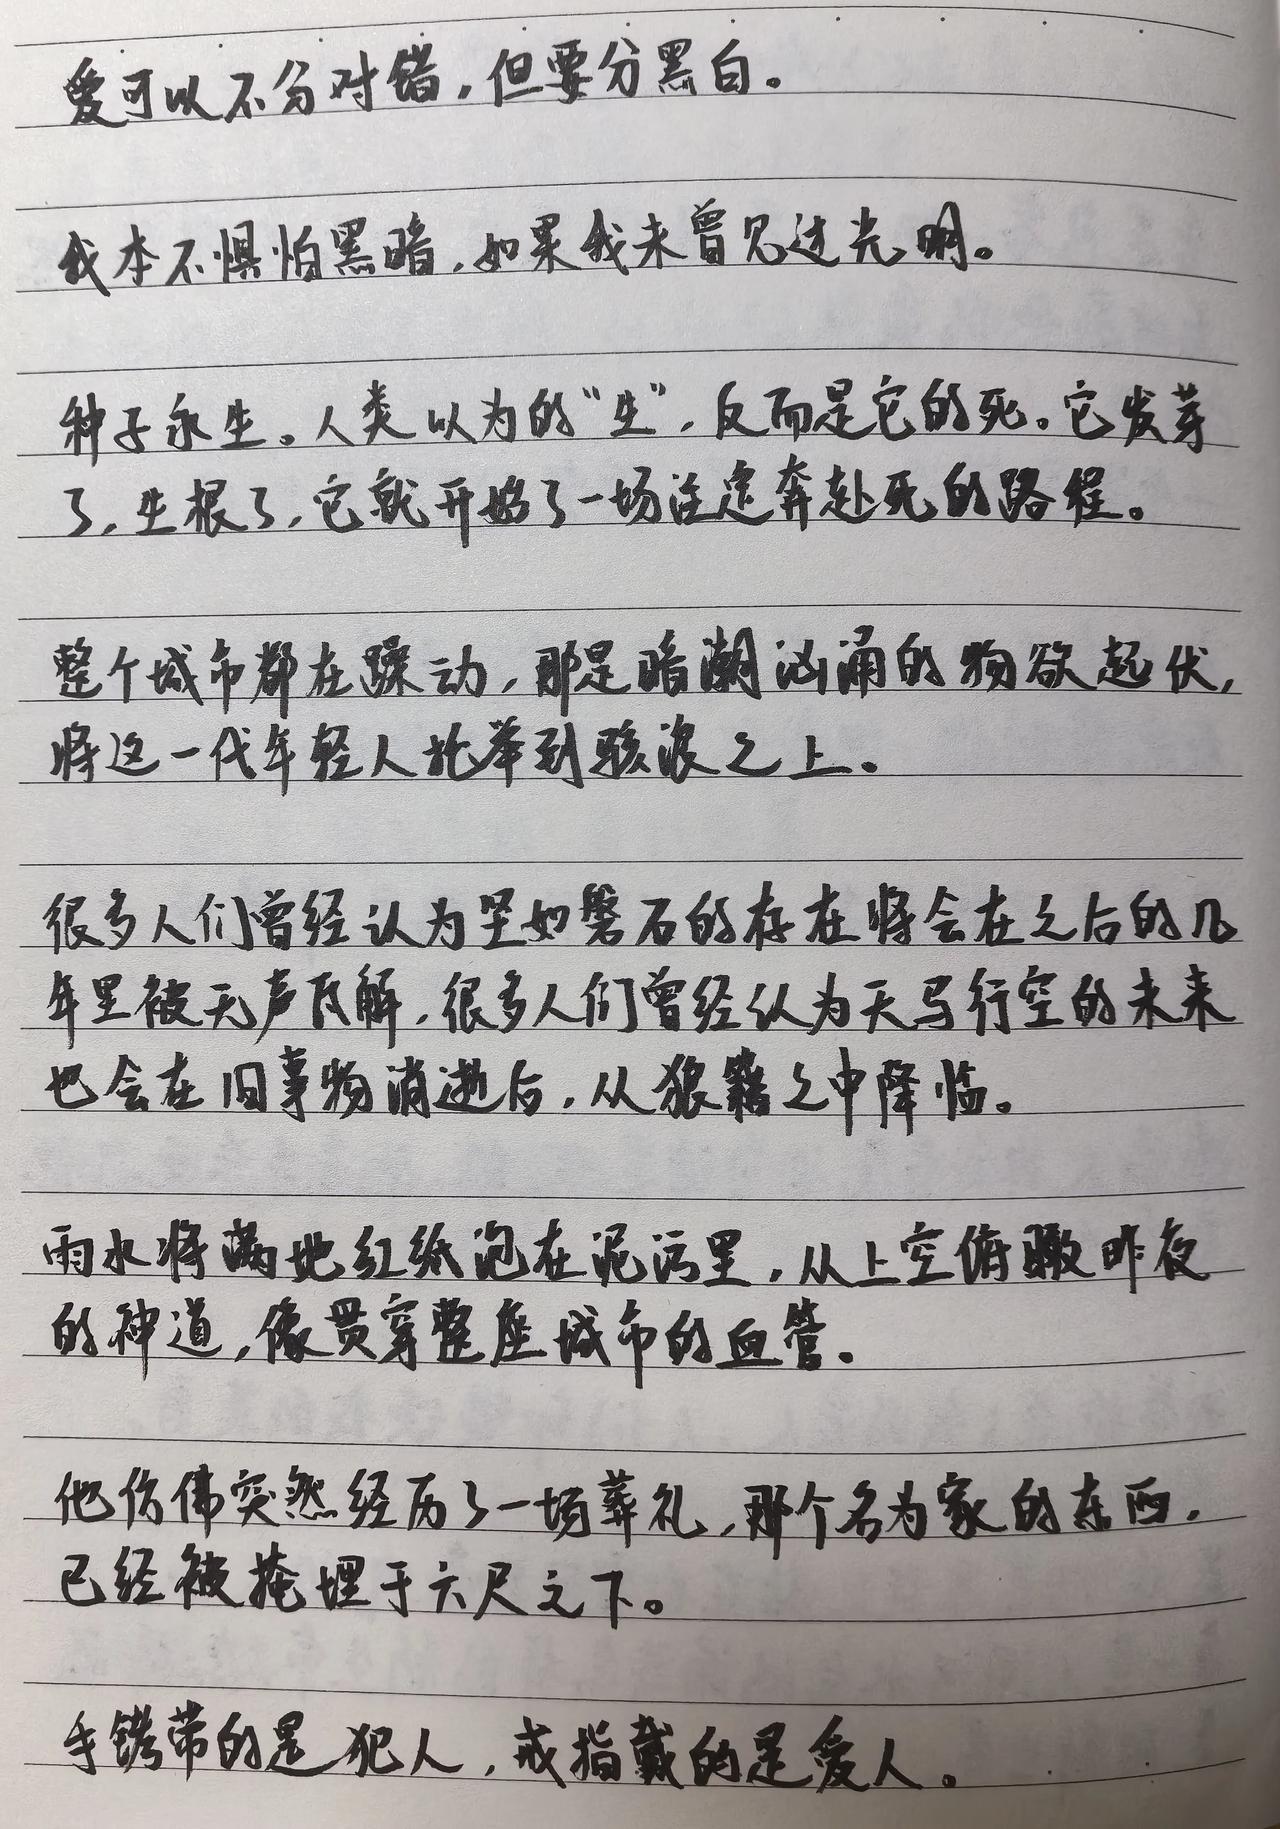 爱可以不分对错，但要分黑白。
我本不惧怕黑暗，如果我未曾见过光明。
种子永生。人类以为的“生”，反而是它的死。它发芽
了，生根了，它就开始了一场注定奔赴死的路程。
整个城市都在躁动，那是暗潮汹涌的物欲起伏，
将这一代年轻人托举到骇浪之上。
很多人们曾经认为坚如磐石的存在将会在之后的几
年里被无声瓦解，很多人们曾经认为天马行空的未来
也会在旧事物消逝后，从狼籍之中降临。
雨水将满地红纸泡在泥污里，从上空俯瞰昨夜
的神道，像贯穿整座城市的血管。
他仿佛突然经历了一场葬礼，那个名为家的东西，
已经被掩埋于六尺之下。
手铐带的是犯人，戒指戴的是爱人。